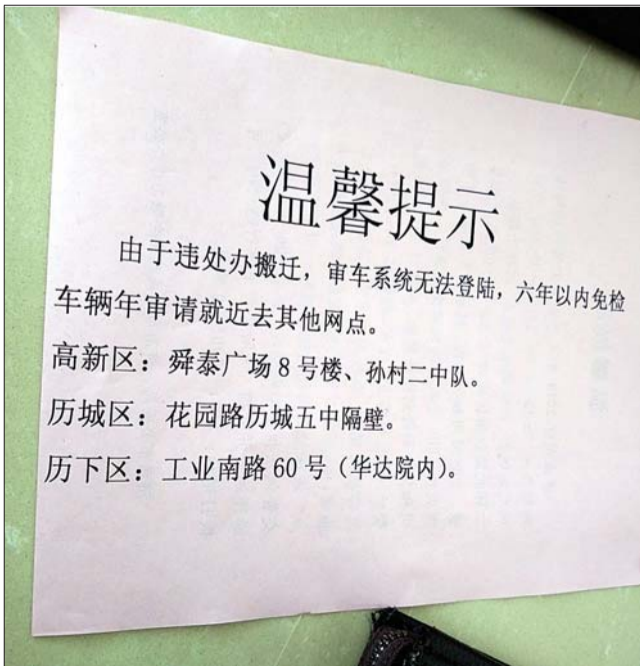 温馨提示
由于违处办搬迁，审车系统无法登陆，六年以内免检
车辆年审请就近去其他网点。
高新区：舜泰广场8号楼、孙村二中队。
历城区：花园路历城五中隔壁。
历下区：工业南路60号（华达院内）。